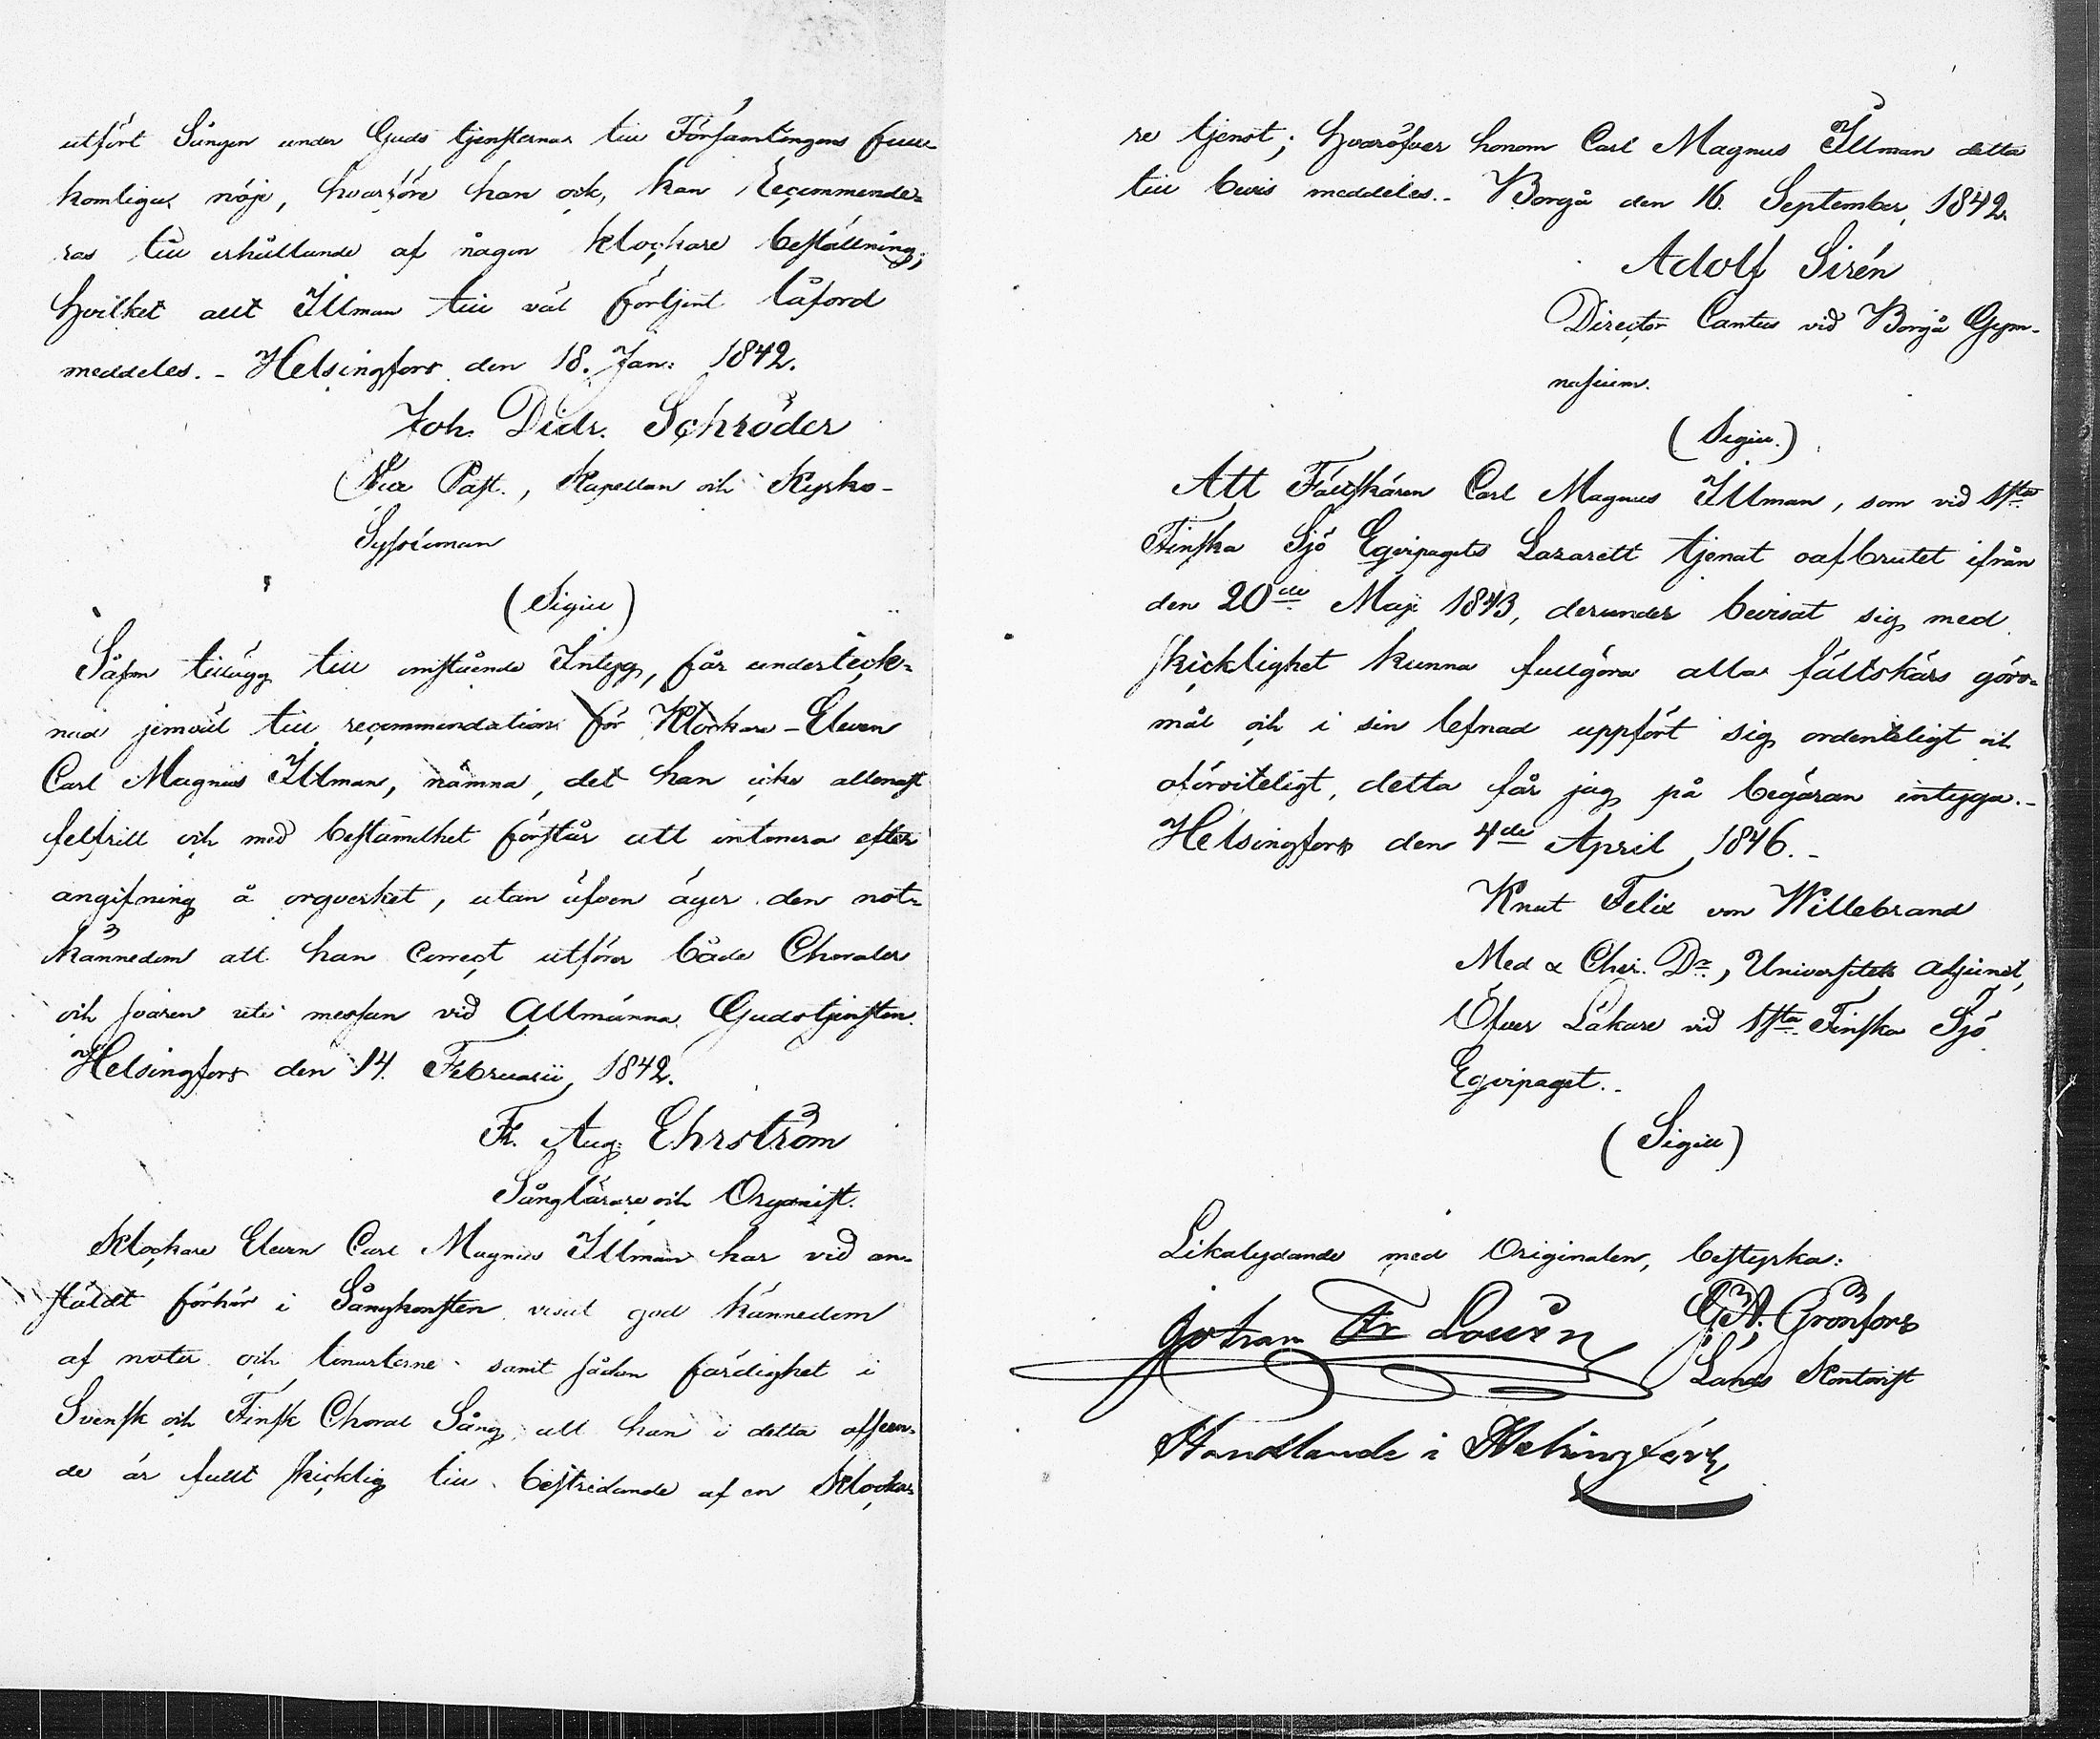 utfört Sången under Guds tjensterna till Församlingens full
komliga nöje, hvarföre han ock, kan Recommende-
ras till erhållande af någon klockare beställning;
hvilket allt Illman till väl förtjent låford
meddeles. - Helsingfors den 18. Jan: 1842.
Joh. Didr. Schröder
Vice Past., Kapellan och Kyrko-
Syssloman
(Sigill)
Såsom tillägg till omstående Intyg, får underteck-
nad jemväl till recommendation för Klockare-Eleven
Carl Magnus Illman, nämna, det han icke allenast
felfritt och med bestämdhet förstår att intonera efter
angifning å orgverket, utan äfven äger den not-
kännedom att han correct utförer både Choraler
och svaren uti messan vid Allmänna Gudstjensten.
Helsingfors den 14. Februarii 1842.
Fr. Aug. Ehrström
Sånglärare och Organist.
Klockare Eleven Carl Magnus Illman har vid an-
stäldt förhör i Sångkonsten visat god kännedom
af noter och tonarterne samt sådan färdighet i
Svensk och Finsk Choral Sång, att han i detta afseen-
de är fullt skicklig till bestridande af en Klocka-
re tjenst; hvaröfver honom Carl Magnus Illman detta
till bevis meddeles.. Borgå den 16. September, 1842.
Adolf Sirén
Director Cantus vid Borgå Gym-
nasium.
(Sigill.)
Att Fältskären Carl Magnus Illman, som vid 1sta
Finska Sjö Eqvipagets Lazarett tjenat oafbrutet ifrån
den 20de Maji 1843, derunder bevisat sig med
skicklighet kunna fullgöra alla fältskärs göro-
mål och i sin lefnad uppfört sig ordenteligt och
oförviteligt, detta får jag på begäran intyga.-
Helsingfors den 4de April 1846.-
Knut Felix von Willebrand
Med & Chir. Dr, Universitets Adjunct,
Öfver Läkare vid 1sta Finska Sjö
Eqvipaget..
(Sigill)
Likalydande med Originalen, bestyrka:
Johan Fr Lovén G.A. Grönfors
Lands Kontorist
Handlande i Helsingfors